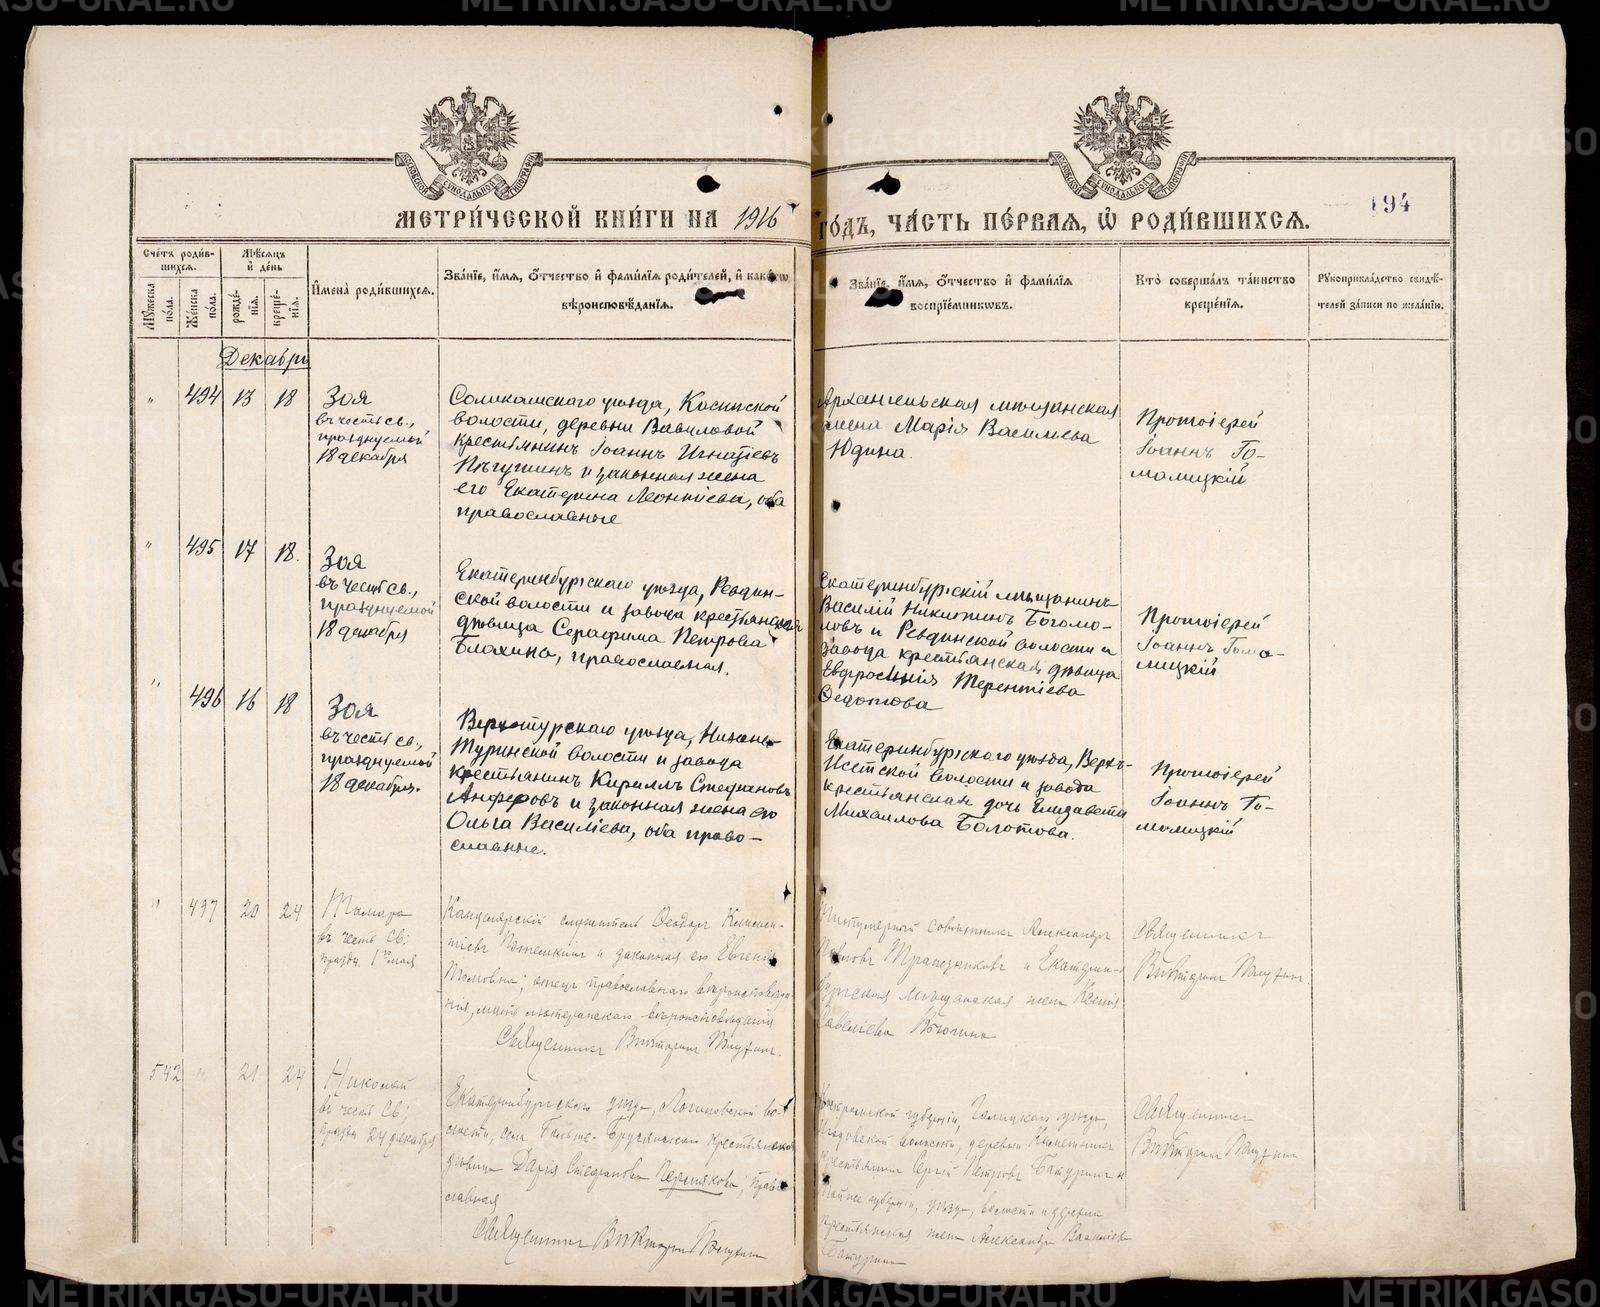 МЕТРИ́ЧЕСКОЙ КНИ́ГИ НА 1916
ГО́ДЪ, ЧА́СТЬ ПЕ́РВАЯ, Ѡ҆ РОДИ́ВШИХСѦ.
194
Сче́тъ роди́в-
шихсѧ.
Мꙋ́жеска по́ла.
Же́нска по́ла.
Мѣ́сѧцъ и҆ де́нь
рожде́-
нїѧ.
креще́-
нїѧ.
И҆мена̀ роди́вшихсѧ.
Зва́нїе, и҆́мѧ, ѻ҆́тчество и҆ фами́лїѧ роди́телей, и҆ како́гѡ
вѣроисповѣ́данїѧ.
Зва́нїе, и҆́мѧ, ѻ҆́тчество и҆ фами́лїѧ
воспрїе́мникѡвъ.
Кто̀ соверша́лъ та́инство
креще́нїѧ.
Рꙋкоприкла́дство свидѣ́-
телей за́писи по жела́нїю.
Декабрь
" 494 13 18
Зоя
въ честь св.,
празднуемой
18 декабря
Соликамскаго уѣзда, Косинской
волости, деревни Вавиловой
крестьянинъ Іоаннъ Игнатіевъ
и законная жена
его Екатерина Леонтіева, оба
православные
Архангельская мѣщанская
жена Марія Василіева
Юдина.
Протоіерей
Іоаннъ Го-
малицкій
" 495 17 18.
Зоя
въ честь св.,
празднуемой
18 декабря
Екатеринбургскаго уѣзда, Ревдин-
ской волости и завода крестьянская
дѣвица Серафима Петрова
Блохина, православная.
Екатеринбургскій мѣщанинъ
Василій Никитинъ Богомо-
ловъ и Ревдинской волости и
завода крестьянская дѣвица
Евфросинія Терентіева
Ѳедотова
Протоіерей
Іоаннъ Гома-
лицкій
" 496 16 18
Зоя
въ честь св.,
празднуемой
18 декабря.
Верхотурскаго уѣзда, Нижне-
Туринской волости и завода
крестьянинъ Кириллъ Стефановъ
Анферовъ и законная жена его
Ольга Василіева, оба право-
славные.
Екатеринбургскаго уѣзда, Верхъ-
Исетской волости и завода
крестьянская дочь Елизавета
Михаилова Болотова.
Протоіерей
Іоаннъ Го-
малицкій
" 497 20 24
Тамара
въ честь св:
праздн. 1го мая
Канцелярскій служитель Ѳеодоръ Климен-
тіевъ Потемкинъ и законная его Евгенія
; отецъ православнаго вѣроисповѣда-
нія, мать лютеранскаго вѣроисповѣданія
Священникъ Викторинъ
Титулярный совѣтникъ Александръ
Павловъ Трапезниковъ и Екатерин-
бургская мѣщанская жена Ксенія
Савеліева
Священникъ
Викторинъ
542 " 21 24
Николай
въ честь св:
праздн 24 декабря
Екатеринбургскаго уѣзда, Логиновской во-
лости, села Больше-Брусянскаго крестьянская
дѣвица Дарія Стефанова Пермякова, право-
славная
Священникъ Викторинъ
Костромской губерніи, Галицкаго уѣзда,
волости, деревни
крестьянинъ Сергій Петровъ Батуринъ и
той же губерніи, уѣзда, волости и деревни
крестьянская жена Александра Василіева
Батурина
Священникъ
Викторинъ
METRIKI.GASO-URAL.RU